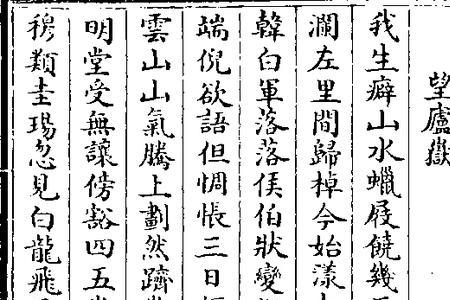 望廬嶽
我生癖山水蠟屐饒幾
瀾左里間歸棹今始漾
韓白軍落落侯伯狀變
端倪欲語但惆悵三日
雲山山氣騰上劃然躋
明堂受無讓傍豁四五
穆類圭瑒忽見白龍飛